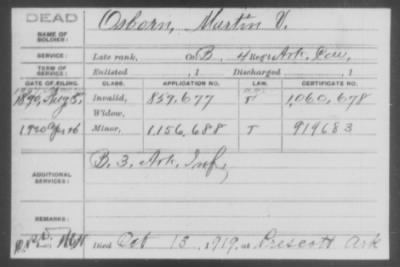 DEAD
NAME OF SOLDIER:
Osborn, Martin V.
SERVICE:
Late rank, Co B, 4 Reg't Ark. Cav.
TERM OF SERVICE:
Enlisted , 1 Discharged , 1
DATE OF FILING. CLASS. APPLICATION NO. LAW. CERTIFICATE NO.
1890, Aug 5, Invalid, 859,677 1,060,678
Widow,
1920 Apr 16 Minor, 1,156,688 T 919683
ADDITIONAL SERVICES:
B. 3, Ark. Inf.
REMARKS:
Died Oct 15, 1919, at Prescott Ark